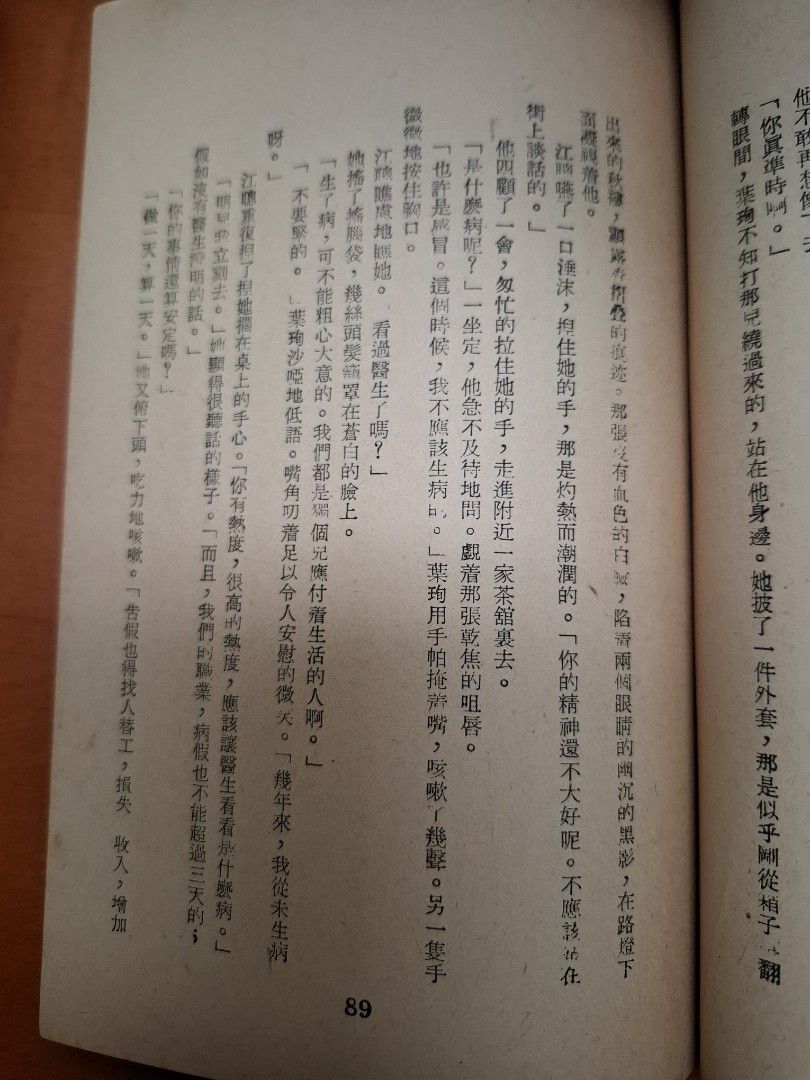 他不敢再想像下去
「你眞準時啊。」
轉眼間，葉珣不知打那兒繞過來的，站在他身邊。她披了一件外套，那是似乎剛從箱子裏翻
出來的秋褸，顯露着摺叠的痕迹。那張沒有血色的白臉，陷着兩個眼睛的幽沉的黑影，在路燈下
面凝視着他。
江嚥了一口唾沫，揑住她的手，那是灼熱而潮潤的。「你的精神還不大好呢。不應該站在
街上談話的。」
他四顧了一會，匆忙的拉住她的手，走進附近一家茶舘裏去。
「是什麽病呢？」一坐定，他急不及待地問。覷着那張乾焦的咀唇。
「也許是感冒。這個時候，我不應該生病的。」葉珣用手帕掩着嘴，咳嗽了幾聲。另一隻手
微微地按住胸口。
江焦慮地瞧她。「看過醫生了嗎？」
她搖了搖腦袋，幾絲頭髮籠罩在蒼白的臉上。
「生了病，可不能粗心大意的。我們都是獨個兒應付着生活的人啊。」
「不要緊的。」葉珣沙啞地低語。嘴角叨着足以令人安慰的微笑。「幾年來，我從未生病
呀。」
江重復揑了揑她擱在桌上的手心。「你有熱度，很高的熱度，應該讓醫生看看是什麽病。」
「明早我立刻去。」她顯得很聽話的樣子。「而且，我們的職業，病假也不能超過三天的；
假如沒有醫生證明的話。」
「你的事情還算安定嗎？」
「做一天，算一天。」她又俯下頭，吃力地咳嗽。「告假也得找人替工，損失　收入，增加
89